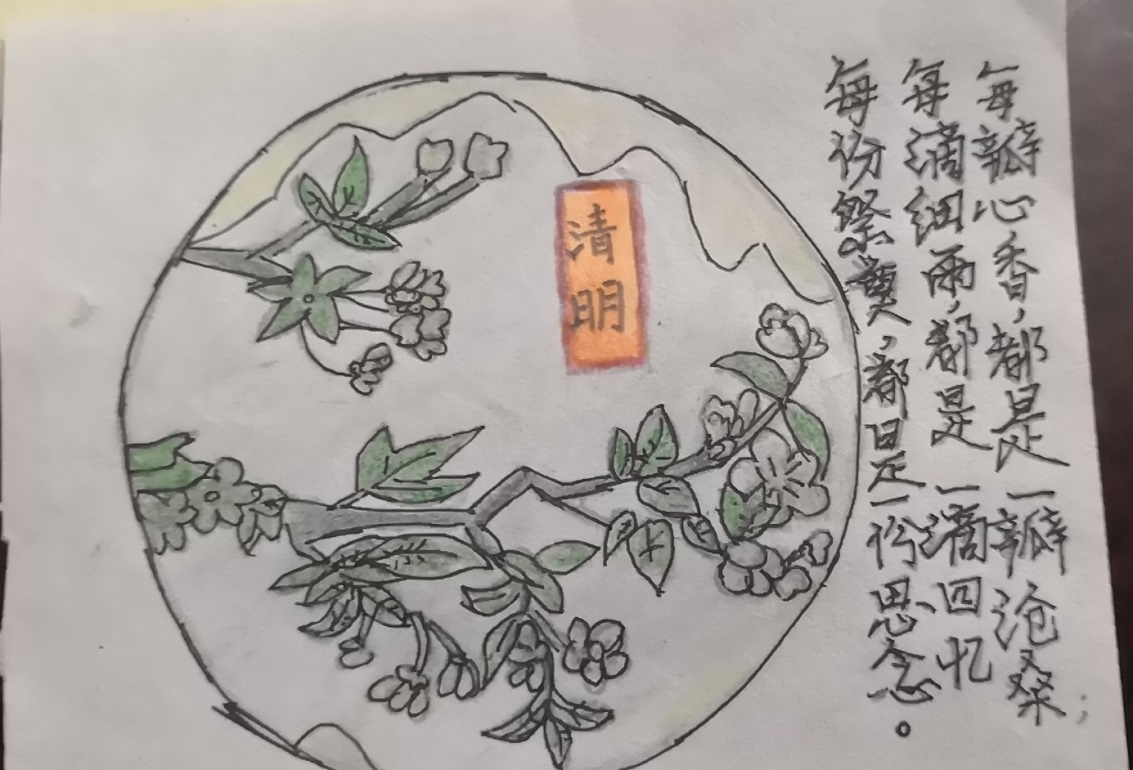 每瓣心香,都是一瓣沧桑;
每滴细雨,都是一滴回忆
每份祭奠,都是一份思念。
清明